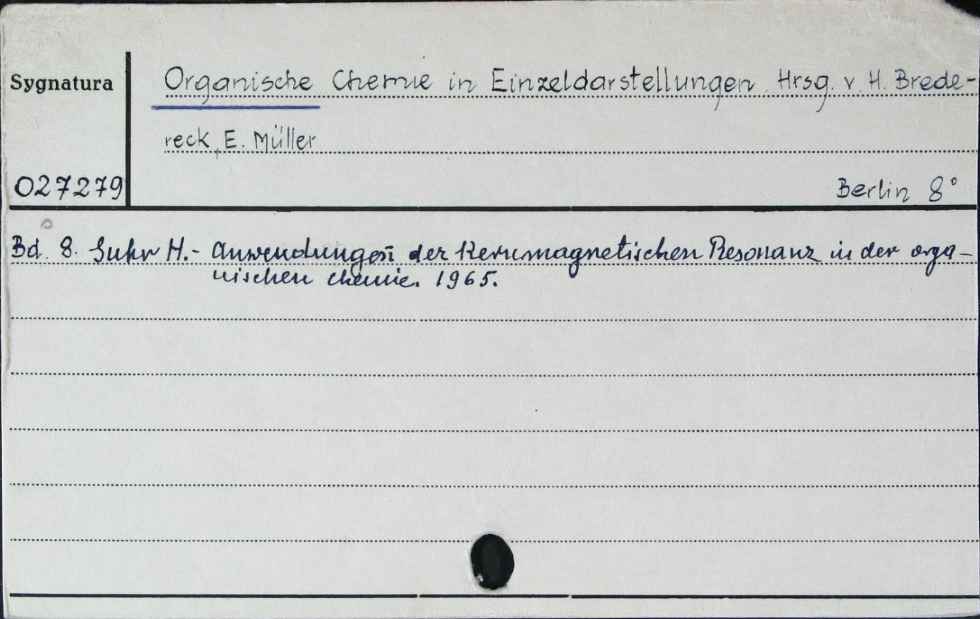 Sygnatura
Organische Chemie in Einzeldarstellungen. Hrsg. v. H. Brede-
reck, E. Müller
027279
Berlin 8°
Bd. 8. Suhr H.- Anwendungen der Kernmagnetischen Resonanz in der orga-
nischen Chemie. 1965.